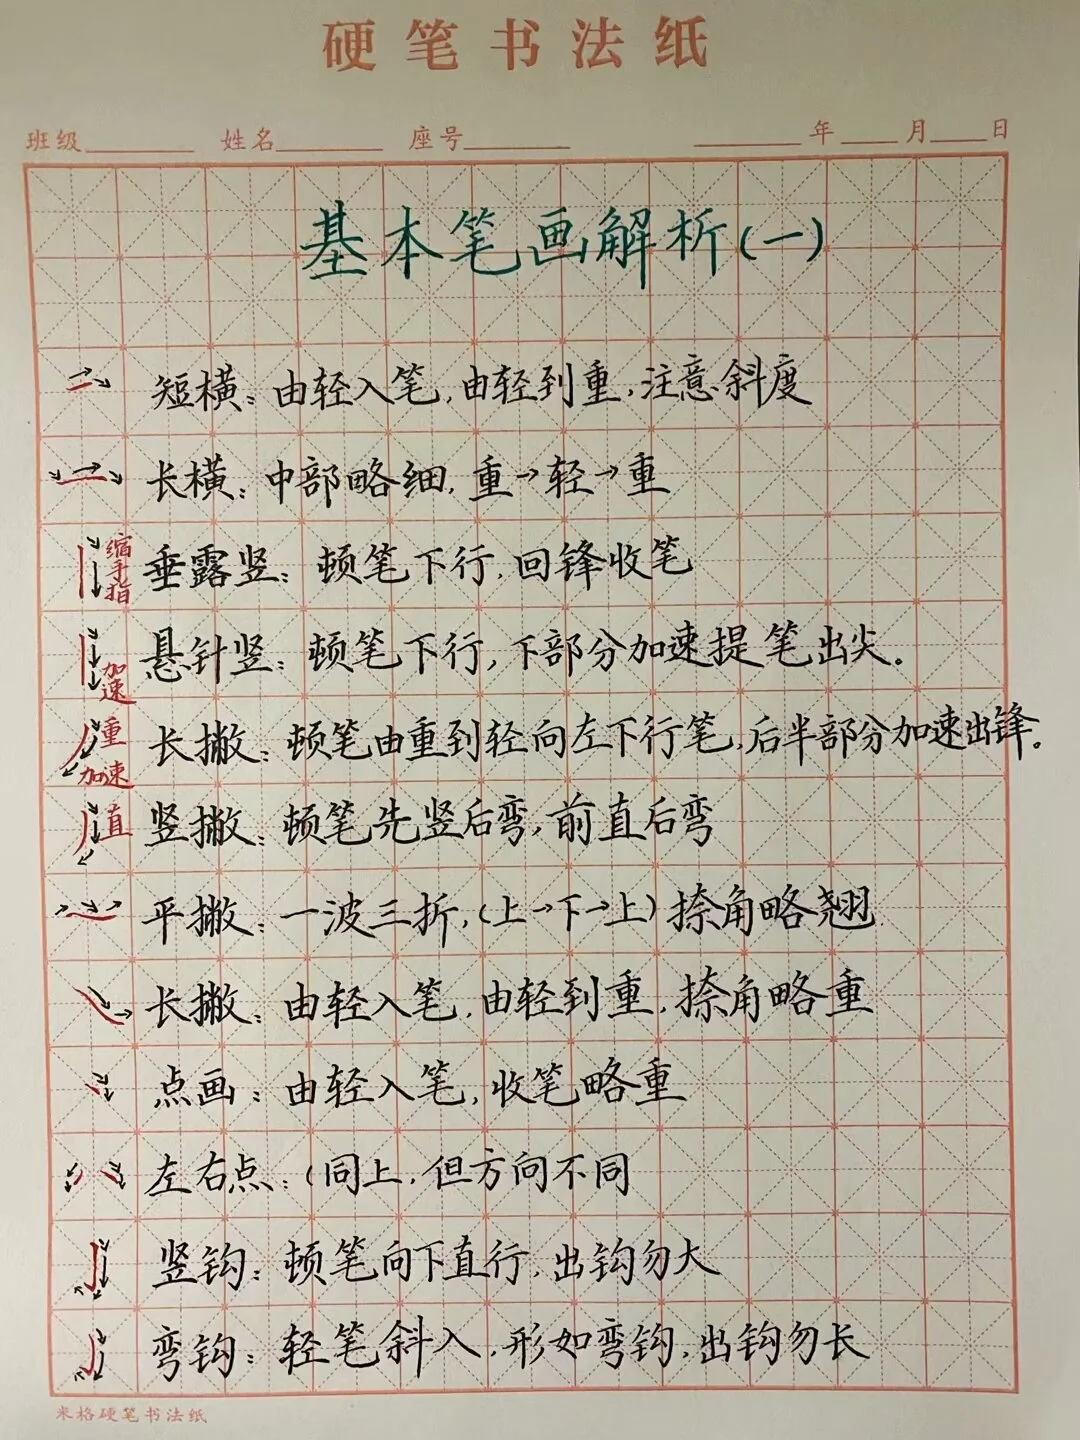 硬笔书法纸
班级 姓名 座号 年 月 日
基本笔画解析(一)
短横：由轻入笔，由轻到重，注意斜度
长横：中部略细，重→轻→重
缩手指 垂露竖：顿笔下行，回锋收笔
加速 悬针竖：顿笔下行，下部分加速提笔出尖。
重 加速 长撇：顿笔由重到轻向左下行笔，后半部分加速出锋。
直 竖撇：顿笔先竖后弯，前直后弯
平撇：一波三折，(上→下→上)捺角略翘
长撇：由轻入笔，由轻到重，捺角略重
点画：由轻入笔，收笔略重
左右点：(同上，但方向不同
竖钩：顿笔向下直行，出钩勿大
弯钩：轻笔斜入，形如弯钩，出钩勿长
米格硬笔书法纸